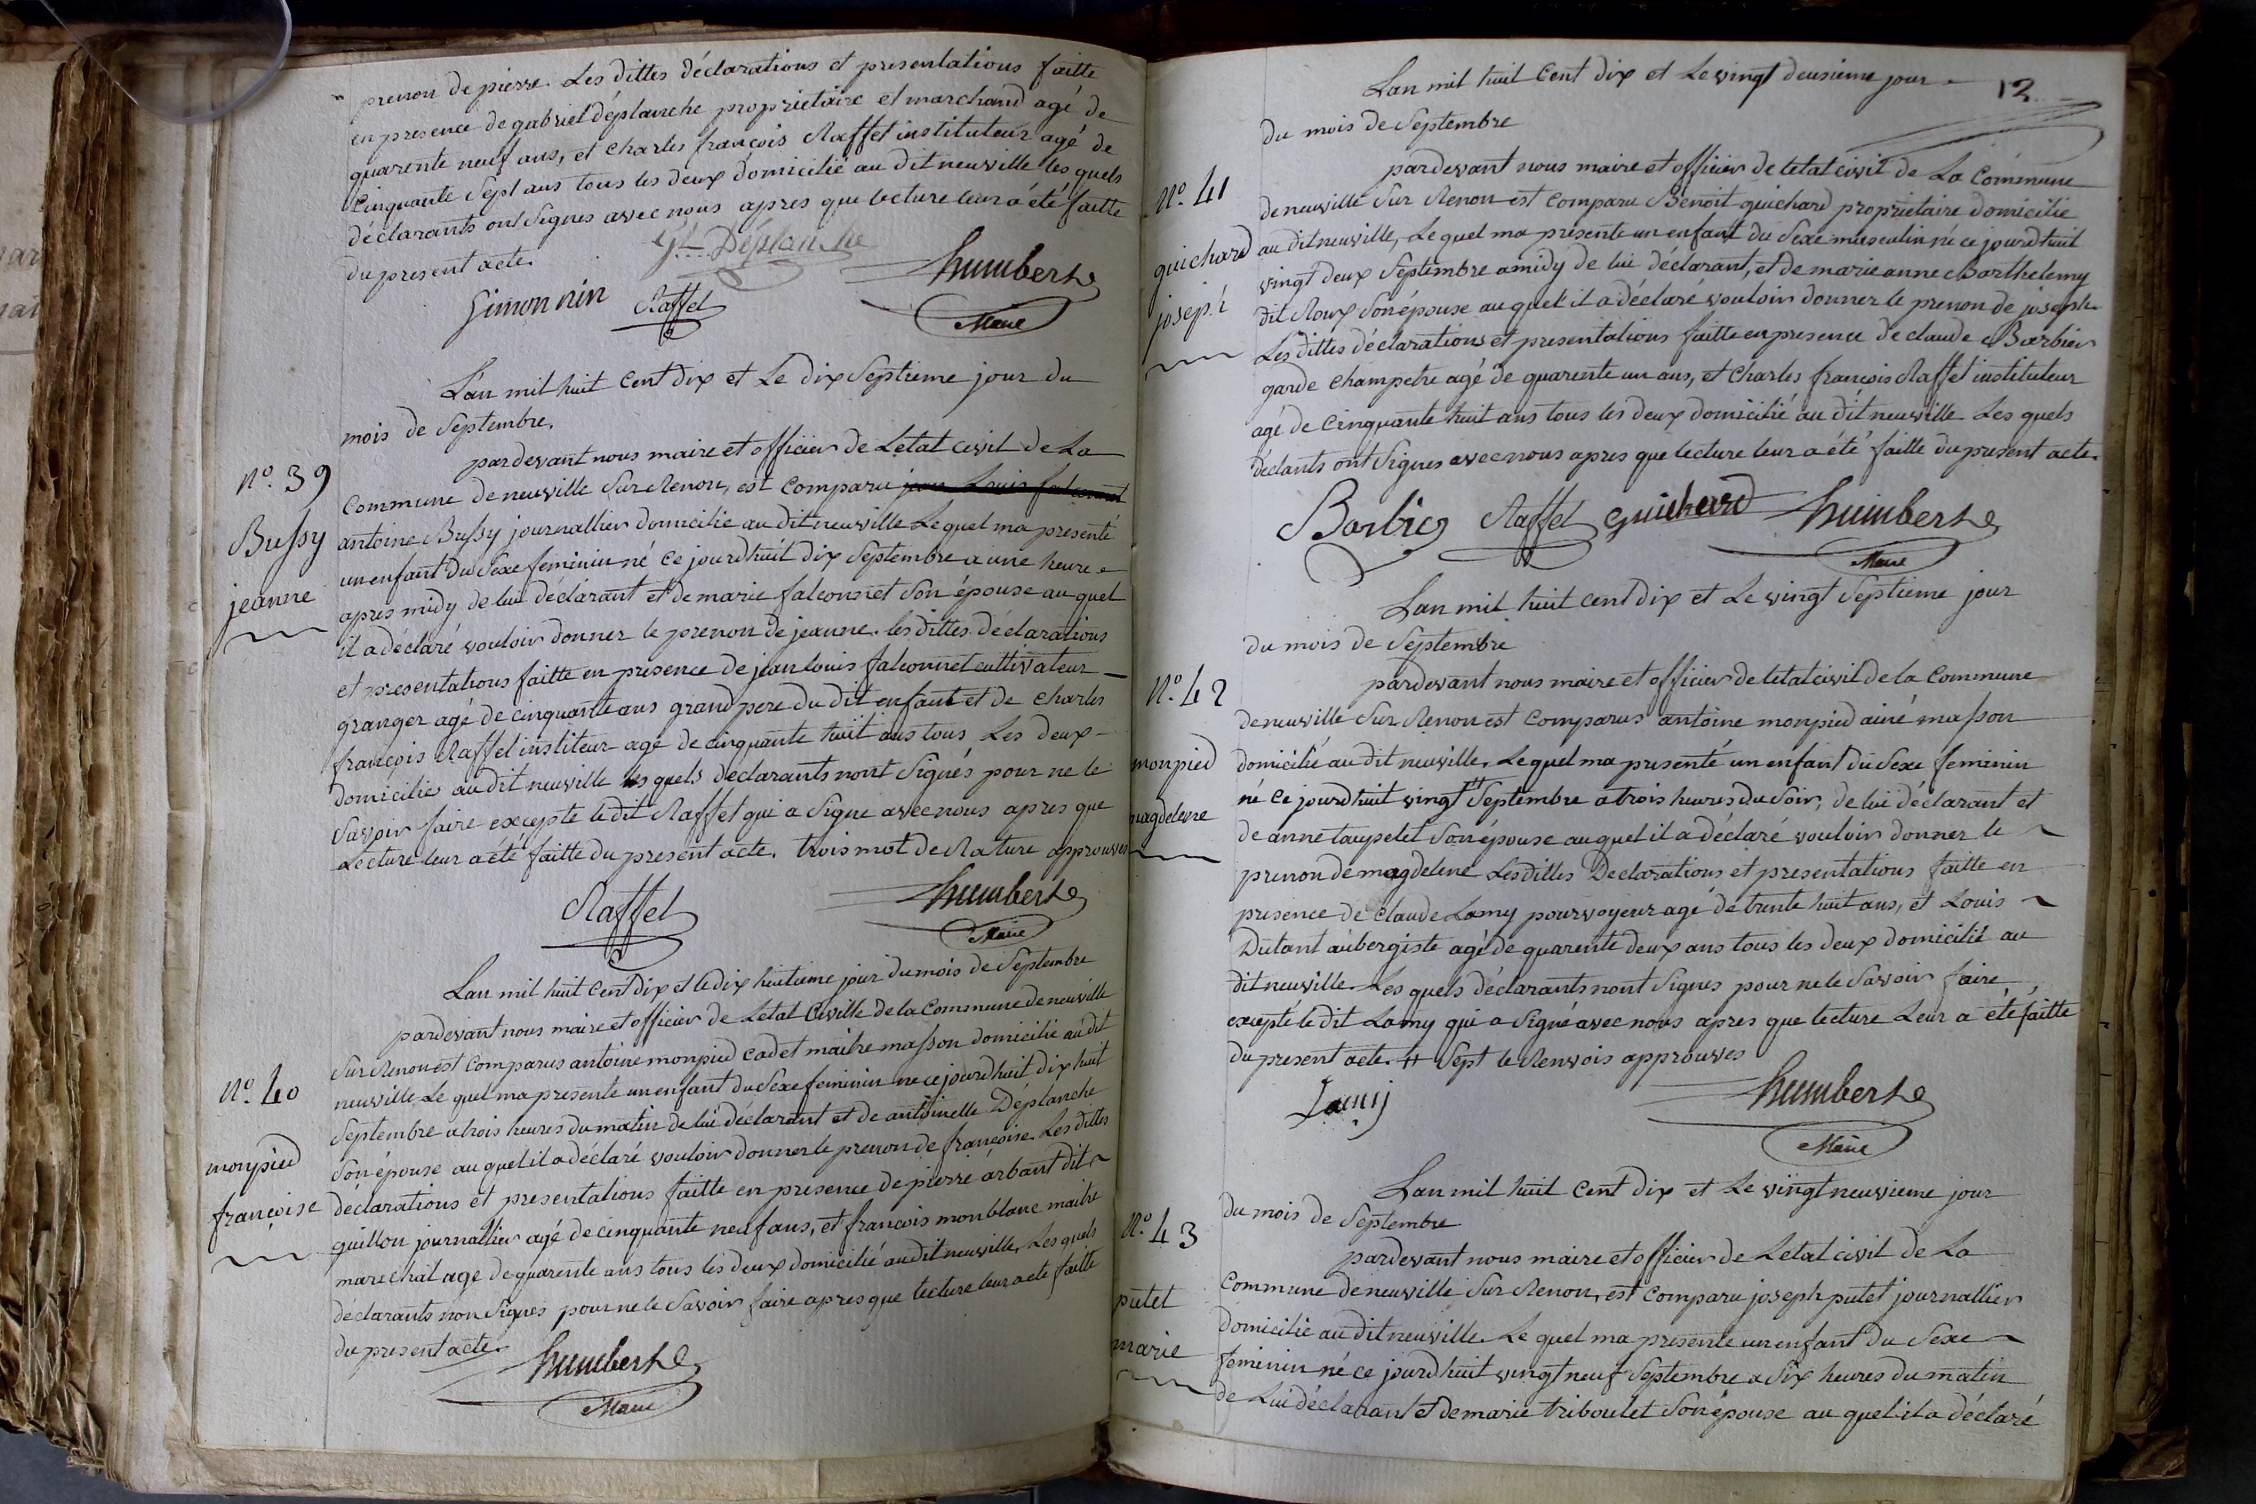 prenon de pierre. Les dittes déclarations et presentations faitte
en presence de gabriel déplanche proprietaire et marchand agé de
quarente neuf ans, et charles françois Raffet instituteur agé de
Cinquante Sept ans tous les deux domicilié au dit neuville les quels
déclarants ont Signes avec nous apres que lecture leur a été faitte
du present acte.
Gl. Déplanche
humbert
Simonnin
Raffet
Maire
L'an mil huit Cent dix et Le dix Septieme jour du
mois de Septembre.
pardevant nous maire et officier de Letat civil de La
N°. 39
Commune de neuville Sur Renon, est Comparu jean Louis falconnet
Bussy
antoine Bussy journallier domicilié au dit neuville Le quel ma presenté
un enfant du Sexe feminin né ce jourdhuit dix Septembre a une heure
jeanne
apres midy de lui déclarant et de marie falconnet Son épouse au quel
il a déclaré vouloir donner le prenon de jeanne. les dittes déclarations
et presentations faitte en presence de jean louis falconnet cultivateur
granger agé de cinquante ans grand pere du dit enfant et de charles
françois Raffet institeur agé de cinquante huit ans tous Les deux
domicilié au dit neuville les quels déclarants nont Signés pour ne le
Savoir faire excepte le dit Raffet qui a Signe avec nous apres que
Lecture leur a été faitte du present acte. trois mot de Rature approuves
Raffet
humbert
Maire
Lan mil huit Cent dix et le dix huitieme jour du mois de Septembre
pardevant nous maire et officier de Letat Civille de la Commune de neuville
N°. 40
Sur Renon est Comparus antoine monpied cadet maitre masson domicilié au dit
neuville Le quel ma presente un enfant du Sexe feminin ne ce jourdhuit dix huit
Septembre a trois heures du matin de lui déclarant et de antoinette Déplanche
monpied
Son épouse au quel il a déclaré vouloir donner le prenon de françoise. Les dittes
françoise
déclarations et presentations faitte en presence de pierre arbant dit
guillon journallier agé de cinquante neuf ans, et francois monblanc maitre
marechal age de quarente ans tous les deux domicilié au dit neuville, Les quels
déclarants non Signes pour ne le Savoir faire apres que lecture leur a ete faitte
du present acte.
humbert
Maire
12
Lan mil huit Cent dix et Le vingt deusieme jour
du mois de Septembre
pardevant nous maire et officier de letat civil de La Commune
N°. 41
de neuville Sur Renon est Comparu Benoit guichard proprietaire domicilie
guichard
au dit neuville, Le quel ma présente un enfant du Sexe musculin né ce jourdhuit
vingt deux Septembre a midy de lui déclarant, et de marie anne Barthelemy
joseph
dit Roux Son épouse au quel il a déclaré vouloir donner le prenon de joseph.
Les dittes déclarations et presentations faitte en presence de claude Barbier
garde Champetre agé de quarente un ans, et Charles françois Raffet instituteur
agé de Cinquante huit ans tous les deux domicilié au dit neuville Les quels
déclants ont Signes avec nous apres que lecture leur a été faitte du present acte.
Barbier Raffet guichard humbert
Maire
Lan mil huit cent dix et Le vingt Septieme jour
du mois de Septembre
pardevant nous maire et officier de letat civil de la Commune
N°. 42
de neuville Sur Renon est Comparus antoine monpied ainé masson
monpied
domicilié au dit neuville, Le quel ma presenté un enfant du Sexe feminin
né ce jourdhuit vingt # Septembre a trois heures du Soir, de lui déclarant et
magdelene
de anne taupelet Son épouse au quel il a déclaré vouloir donner le
prenon de magdelene Les dittes Déclarations et presentations faitte en
presence de Claude Lamy pourvoyeur agé de trente huit ans, et Louis
Dutant aubergiste agé de quarente deux ans tous les deux domicilié au
dit neuville. Les quels déclarants nont Signes pour ne le Savoir faire
excepté le dit Lamy qui a Signé avec nous apres que lecture Leur a été faitte
du present acte. # Sept le Renvois approuves
Lamy
humbert
Maire
Lan mil huit Cent dix et Le vingt neuvieme jour
du mois de Septembre
N°. 43
pardevant nous maire et officier de Letat civil de La
putet
Commune de neuville Sur Renon, est Comparu joseph putet journallier
domicilié au dit neuville. Le quel ma presente un enfant du Sexe
marie
feminin né ce jourdhuit vingt neuf Septembre a Six heures du matin
de Lui déclarant et de marie triboulet Son épouse au quel il a déclaré